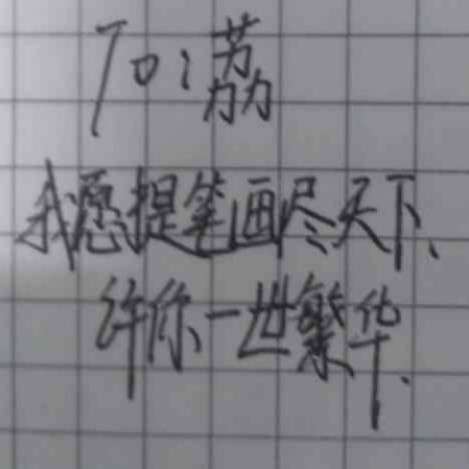 To:荔
我愿提笔画尽天下、
许你一世繁华、